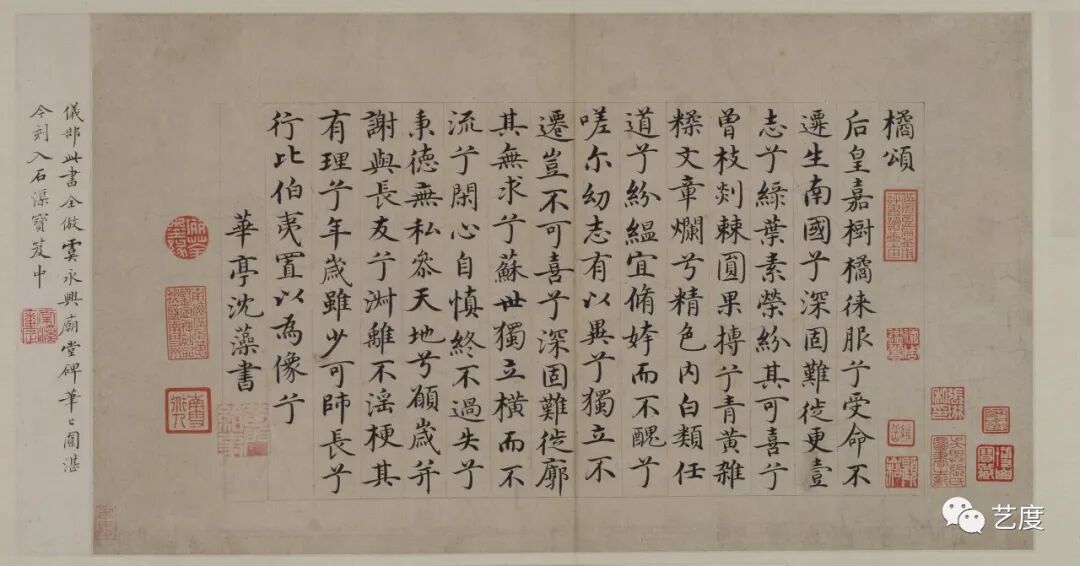 橘頌
后皇嘉樹橘徠服兮受命不
遷生南國兮深固難徙更壹
志兮綠葉素榮紛其可喜兮
曾枝剡棘圓果摶兮青黃雜
糅文章爛兮精色內白類任
道兮紛緼宜脩姱而不醜兮
嗟尔幼志有以異兮獨立不
遷豈不可喜兮深固難徙廓
其無求兮蘇世獨立橫而不
流兮閑心自慎終不過失兮
秉德無私參天地兮願歲并
謝與長友兮淑離不淫梗其
有理兮年歲雖少可師長兮
行比伯夷置以為像兮
華亭沈藻書
儀部此書全倣虞永興廟堂碑筆〻圓湛
今刻入石渠寶笈中
艺度